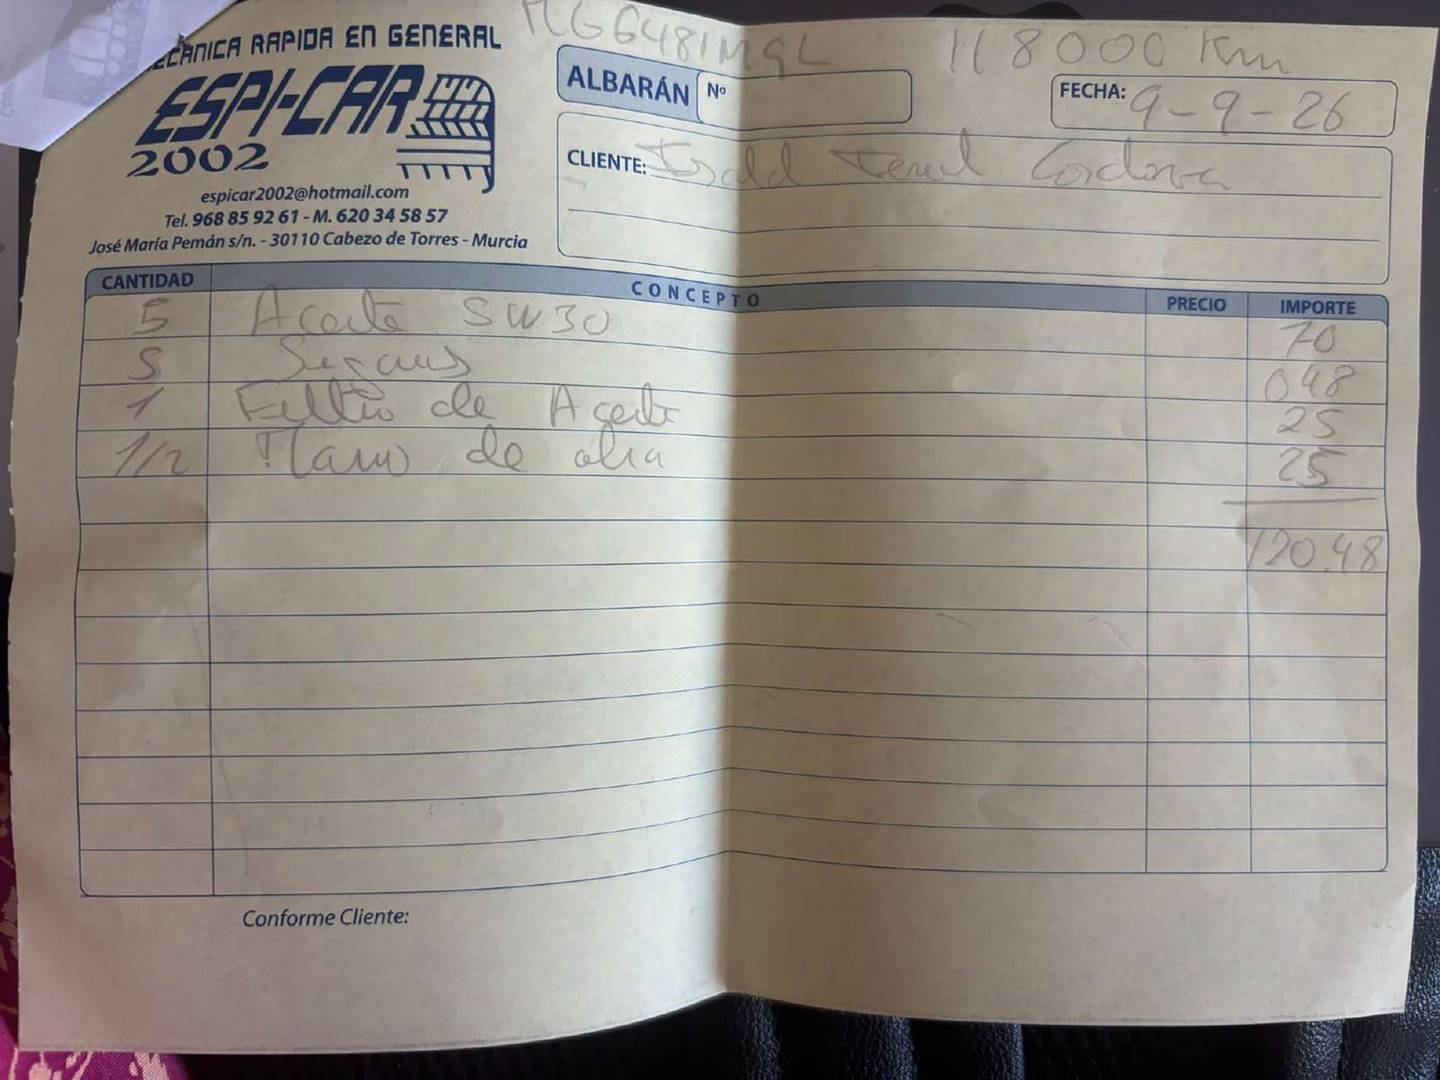 MECÁNICA RAPIDA EN GENERAL
ESPI-CAR
2002
espicar2002@hotmail.com
Tel. 968 85 92 61 - M. 620 34 58 57
José María Pemán s/n. - 30110 Cabezo de Torres - Murcia
118000 Km
ALBARÁN Nº
FECHA: 9-9-26
CLIENTE: Cordova
CANTIDAD CONCEPTO PRECIO IMPORTE
5 Aceite 5W30 70
5 048
1 Filtro de Aceite 25
1/2 Mano de obra 25
120.48
Conforme Cliente: